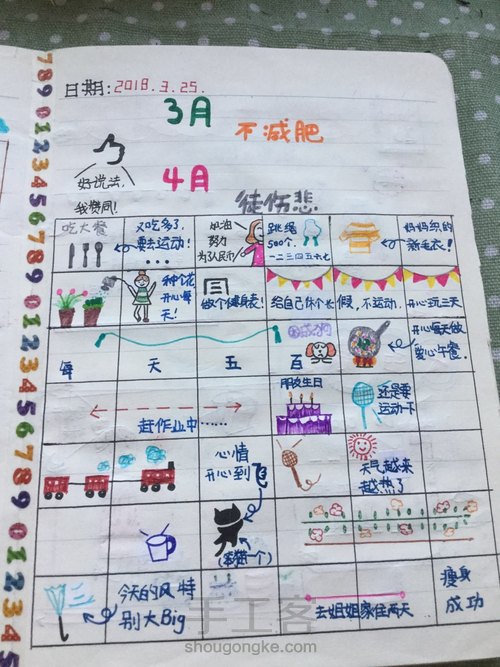 日期:2018.3.25.
3月
不减肥
好说法,
我赞同!
4月
徒伤悲
吃大餐
又吃多了,
要去运动!
加油
努力
为了人民币
跳绳
500个.
一二三四五六七
妈妈织的
新毛衣!
种个花
开心每
天!
做个健身表!
给自己休个长假,不运动.
开心玩三天
每天五百
开心每天做
爱心午餐.
赶作业中……
朋友生日
还是要
运动一下
心情
开心到飞
天气越来
越热了
(笨猫一个)
今天的风特
别大Big
去姐姐家住两天
瘦身
成功
手工客
shougongke.com
7890123456789012345678901234567890123